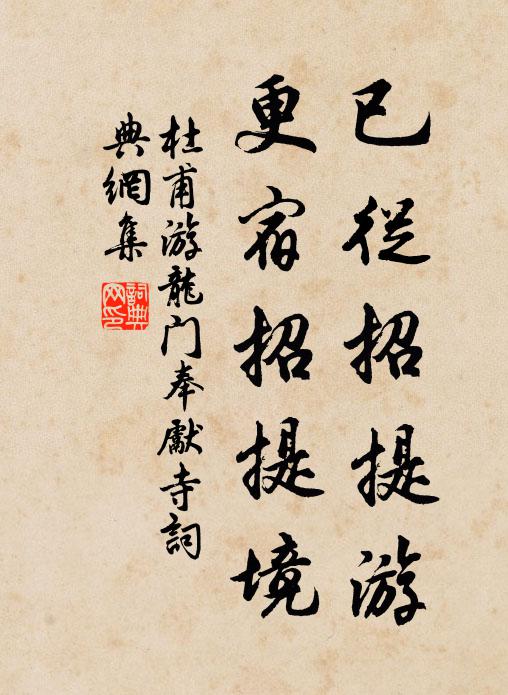 已從招提游
更宿招提境
杜甫游龍门奉獻寺詞
典網集
詞典
网印